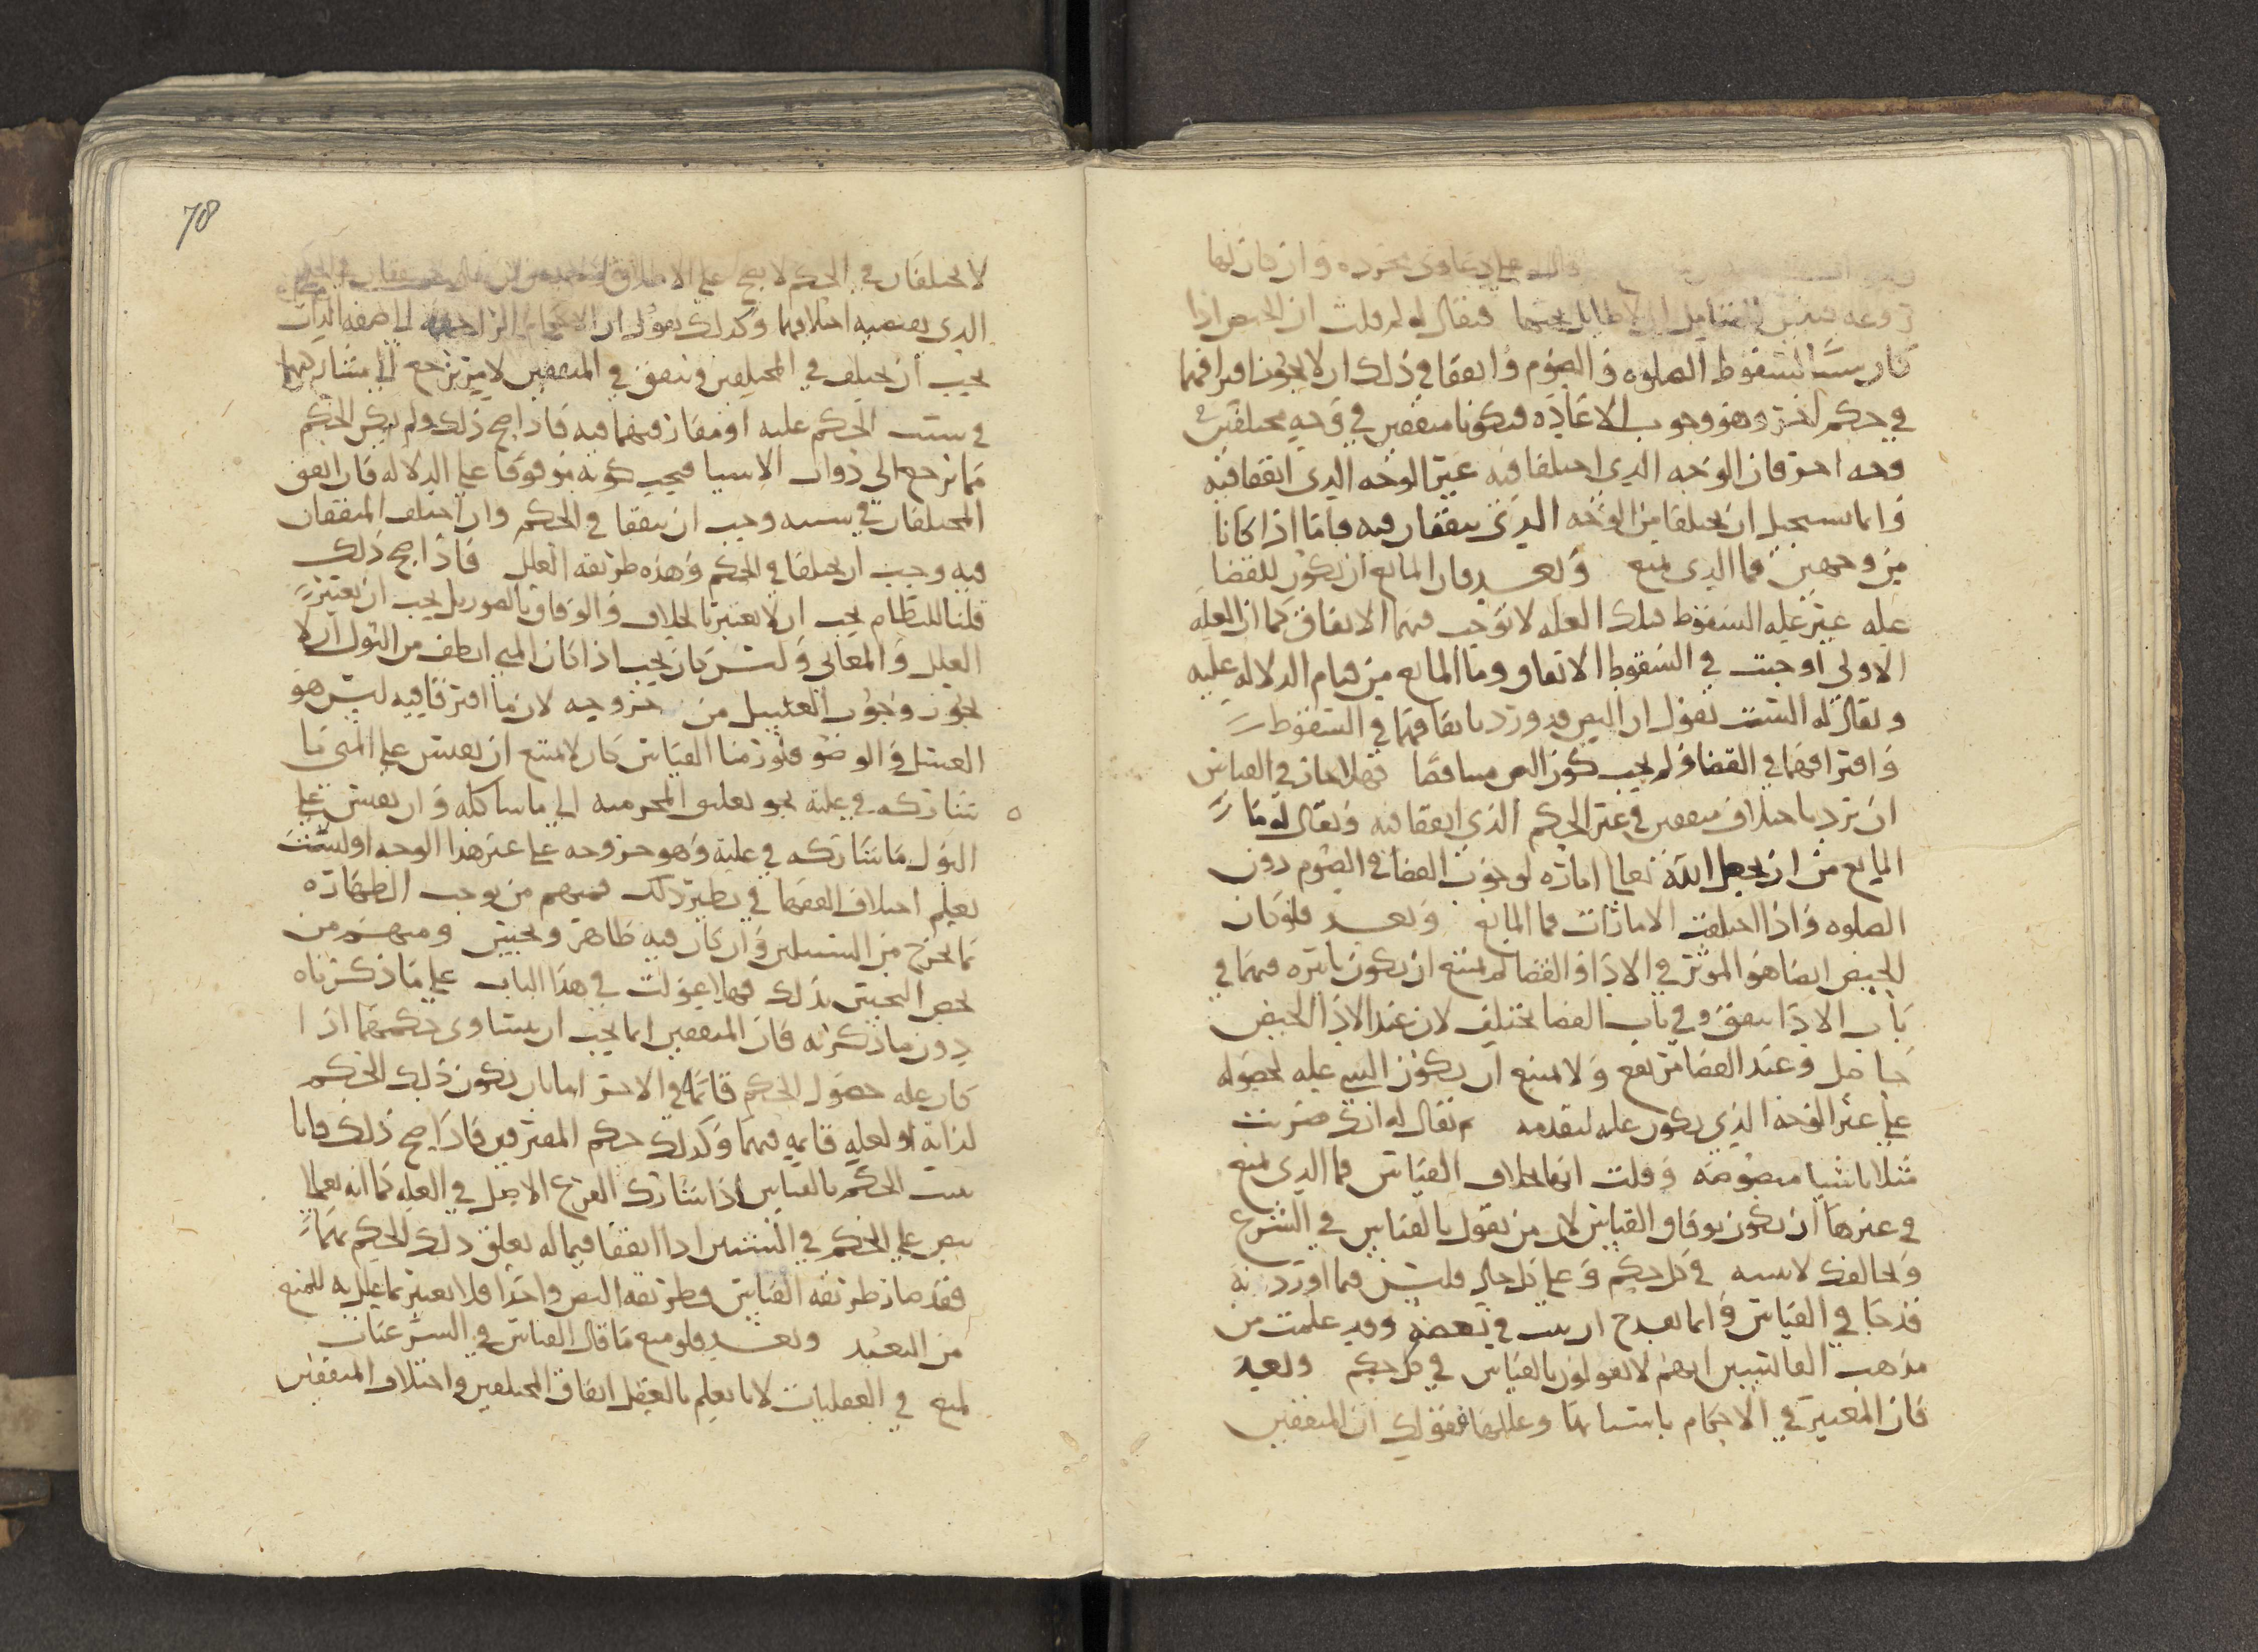 على دعاوى مجرده وان كان لها
روعه فتبين للمتأمل ان لا طايل تحتها فيقال له لم قلت ان الحيض اذا
كان سببًا لسقوط الصلوه والصوم واتفقا في ذلك ان لا يجوز افتراقهما
في حكم آخر وهو وجوب الاعاده فيكونا متفقين في وجه مختلفين في
وجه اخر فان الوجه الذي اختلفا فيه غير الوجه الذي اتفقا فيه
وانما يستحيل ان يختلفا من الوجه الذي يتفقان فيه فاما اذا كانا
من وجهين فما الذي يمنع وبعد فان المانع ان يكون للقضا
عله غير عله السقوط فتلك العله لا توجب فيهما الاتفاق كما ان العله
الاولى اوجبت في السقوط الاتفاق وما المانع من قيام الدلاله عليه
ويقال له الست تقول ان النص قد ورد باتفاقهما في السقوط
وافتراقهما في القضا ولم يجب كون النص متناقضا فهلا جاز في القياس
ان يرد باختلاف متفقين في غير الحكم الذي اتفقا فيه ويقال له ما
المانع من ان يجعل الله تعالى اماره لوجوب القضا في الصوم دون
الصلوه واذا اختلفت الامارات فما المانع وبعد فلو كان
الحيض ايضا هو المؤثر في الادا والقضا لم يمتنع ان يكون تاثيره فيهما في
باب الادا يتفق وفي باب القضا يختلف لان عند الادا الحيض
حاصل وعند القضا مرتفع ولا يمتنع ان يكون الشي عله لحصوله
على غير الوجه الذي يكون عله لتقدمه ثم يقال له انك ضربت
مثلا باشيا منصوصه وقلت انها بخلاف القياس فما الذي يمنع
في غيرها ان يكون بوفاق القياس لان من يقول بالقياس في الشرع
ومخالفك لا يثبته في كل حكم وعلى كل حال فليس فيما اوردته
قدحا في القياس وانما يقدح ان يثبت في بعضه وقد علمت من
مذهب القائسين انهم لا يقولون بالقياس في كل حكم وبعد
فان المعتبر في الاحكام باسبابها وعللها فقولك ان المتفقين
78
لا يختلفان في الحكم لا يصح على الاطلاق
الذي يقتضيه اختلافهما وكذلك يقول ان الاحكام الراجعه الى صفه الذات
يجب ان يختلف في المختلفين ويتفق في المتفقين لامر يرجع الى مشاركتهما
في سبب الحكم عليه او مفارقتهما فيه فاذا صح ذلك ولم يكن الحكم
مما يرجع الى ذوات الاشيا فيجب كونه موقوفا على الدلاله فان اتفق
المختلفان في سببه وجب ان يتفقا في الحكم وان اختلف المتفقان
فيه وجب ان يختلفا في الحكم وهذه طريقه العلل فاذا صح ذلك
قلنا للنظام يجب ان لا يعتبر بالخلاف والوفاق بالصور بل يجب ان يعتبر
العلل والمعاني وليس كان يجب اذا كان المني انظف من البول ان لا
يجوز وجوب الغسل من خروجه لان ما افترقا فيه ليس هو
الغسل والوضو فلو رمنا القياس كان لا يمتنع ان يقيس على المنى ما
شاركه في علته نحو تعليق المحرميه الى ما شاكله وان يقيس على
البول ما شاركه في علته وهو خروجه على غير هذا الوجه اوليست
تعلم اختلاف الفقها في نظير ذلك فمنهم من يوجب الطهاره
بما يخرج من السبيلين وان كان فيه طاهر ونجس ومنهم من
يخص النجس بذلك فهلا عولت في هذا الباب على ما ذكرناه
دون ما ذكرته فان المتفقين انما يجب ان يتساوى حكمهما اذا
كان عله حصول الحكم قائما في الاخر اما بان يكون ذلك الحكم
لذاته او لعله قايمه فيهما وكذلك حكم المفترقين فاذا صح ذلك فانا
نثبت الحكم بالقياس اذا شارك الفرع الاصل في العله كما انه تعالى
ينص على الحكم في الشيئين اذا اتفقا فيما له تعلق ذلك الحكم بهما
فقد صار طريقه القياس وطريقه النص واحدا فلا يعتبر بما علل به للمنع
من التعبد وبعد فلو منع ما قال القياس في الشرعيات
لمنع في العقليات لانا نعلم بالعقل اتفاق المختلفين واختلاف المتفقين